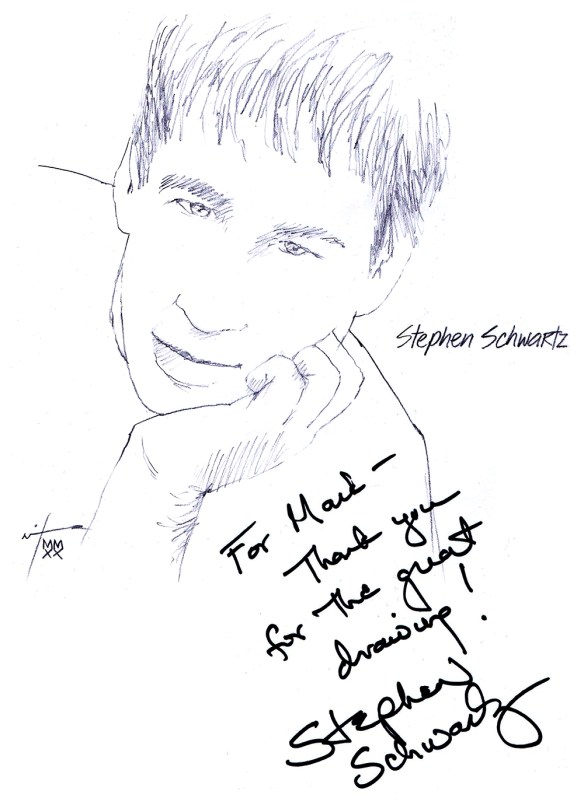 Stephen Schwartz
MM
XX
For Mark –
Thank you
for the great
drawing!
Stephen
Schwartz